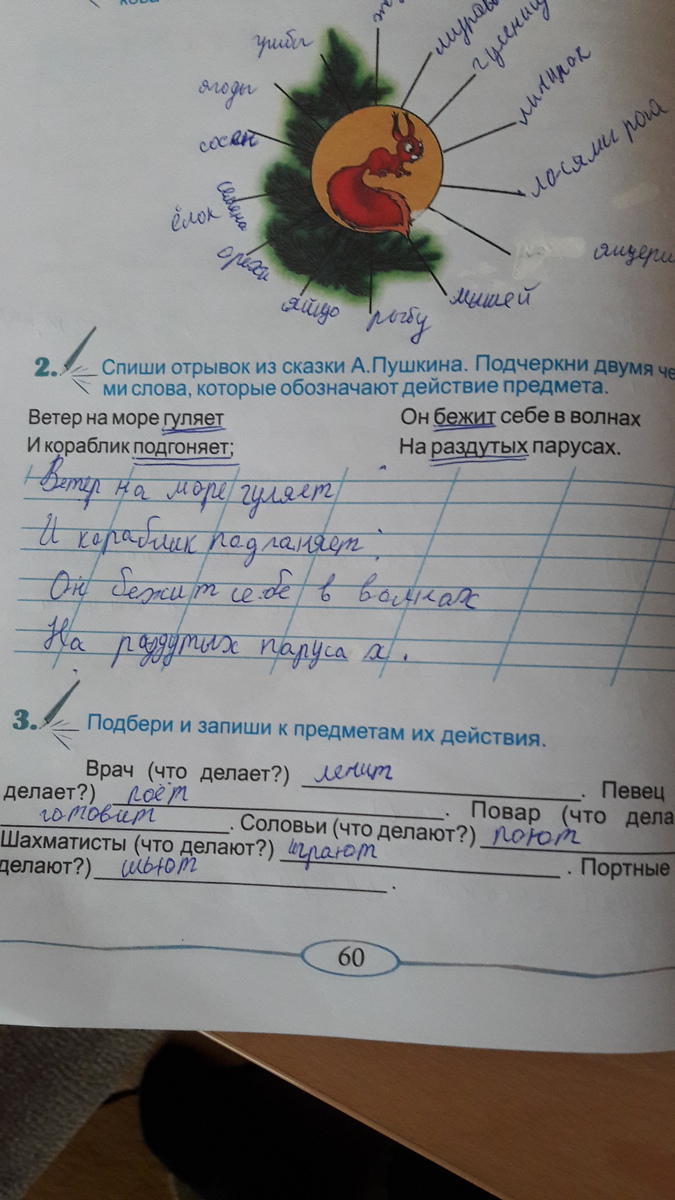 грибы
гусениц
ягоды
сосен
лишайник
лосями рога
семена
ёлок
орехи
яйцо
рыбу
мышей
ящериц
2. Спиши отрывок из сказки А.Пушкина. Подчеркни двумя че
ми слова, которые обозначают действие предмета.
Ветер на море гуляет Он бежит себе в волнах
И кораблик подгоняет; На раздутых парусах.
Ветер на море гуляет
И кораблик подганяет ;
Он бежит себе в волнах
На раздутых паруса х .
3. Подбери и запиши к предметам их действия.
Врач (что делает?) лечит . Певец
делает?) поёт . Повар (что дела
готовит . Соловьи (что делают?) поют
Шахматисты (что делают?) играют . Портные
делают?) шьют .
60